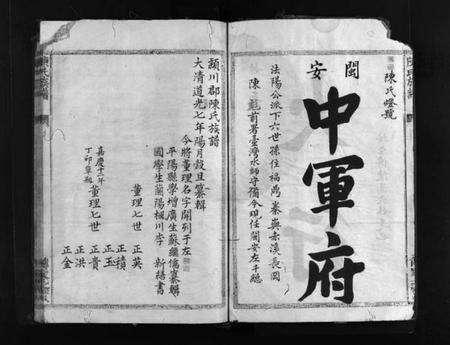 陳氏燈號
閩安
中軍府
法陽公派下六世孫住福鼎秦嶼赤溪長岡
陳 龍前署臺灣水師守備今現任閩安左千總
潁川郡陳氏族譜
大清道光七年陽月穀旦纂輯
今將董理名字開列于左
平陽縣學增廣生蘇繼儒纂輯
國學生蘭陽楓川李 新繕書
董理七世
正英
正積
嘉慶十二年
丁卯草創
董理七世
正玉
正貴
正洪
正金